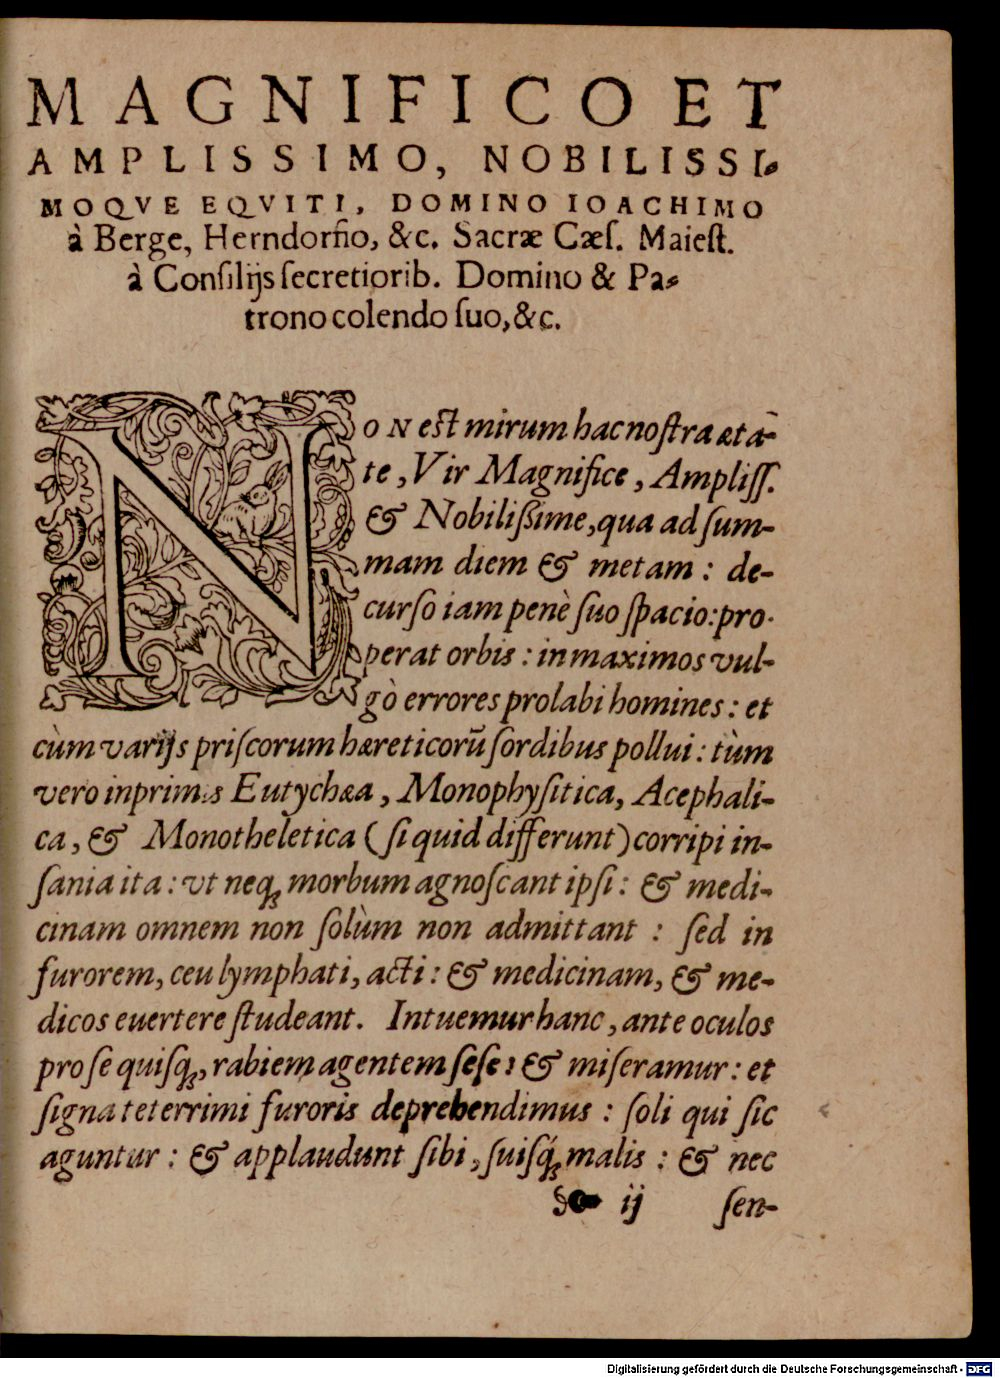 MAGNIFICO ET
AMPLISSIMO, NOBILISSI-
MOQVE EQVITI, DOMINO IOACHIMO
à Berge, Herndorfio, &c. Sacræ Cæſ. Maieſt.
à Conſilijs ſecretiorib. Domino & Pa-
trono colendo ſuo, &c.
NON eſt mirum hac noſtra ætā-
te, Vir Magnifice, Ampliſſ.
& Nobilißime, qua ad ſum-
mam diem & metam: de-
curſo iam penè ſuo ſpacio: pro-
perat orbis: in maximos vul-
gò errores prolabi homines: et
cùm varijs priſcorum hæreticorū ſordibus pollui: tùm
vero inprimis Eutychæa, Monophyſitica, Acephali-
ca, & Monotheletica (ſi quid differunt) corripi in-
ſania ita: vt neqꝫ morbum agnoſcant ipſi: & medi-
cinam omnem non ſolùm non admittant: ſed in
furorem, ceu lymphati, acti: & medicinam, & me-
dicos euertere ſtudeant. Intuemur hanc, ante oculos
pro ſe quiſqꝫ, rabiem agentem ſeſe: & miſeramur: et
ſigna teterrimi furoris deprehendimus: ſoli qui ſic
aguntur: & applaudunt ſibi, ſuiſq́ꝫ malis: & nec
☙ ij ſen-
Digitalisierung gefördert durch die Deutsche Forschungsgemeinschaft - DFG